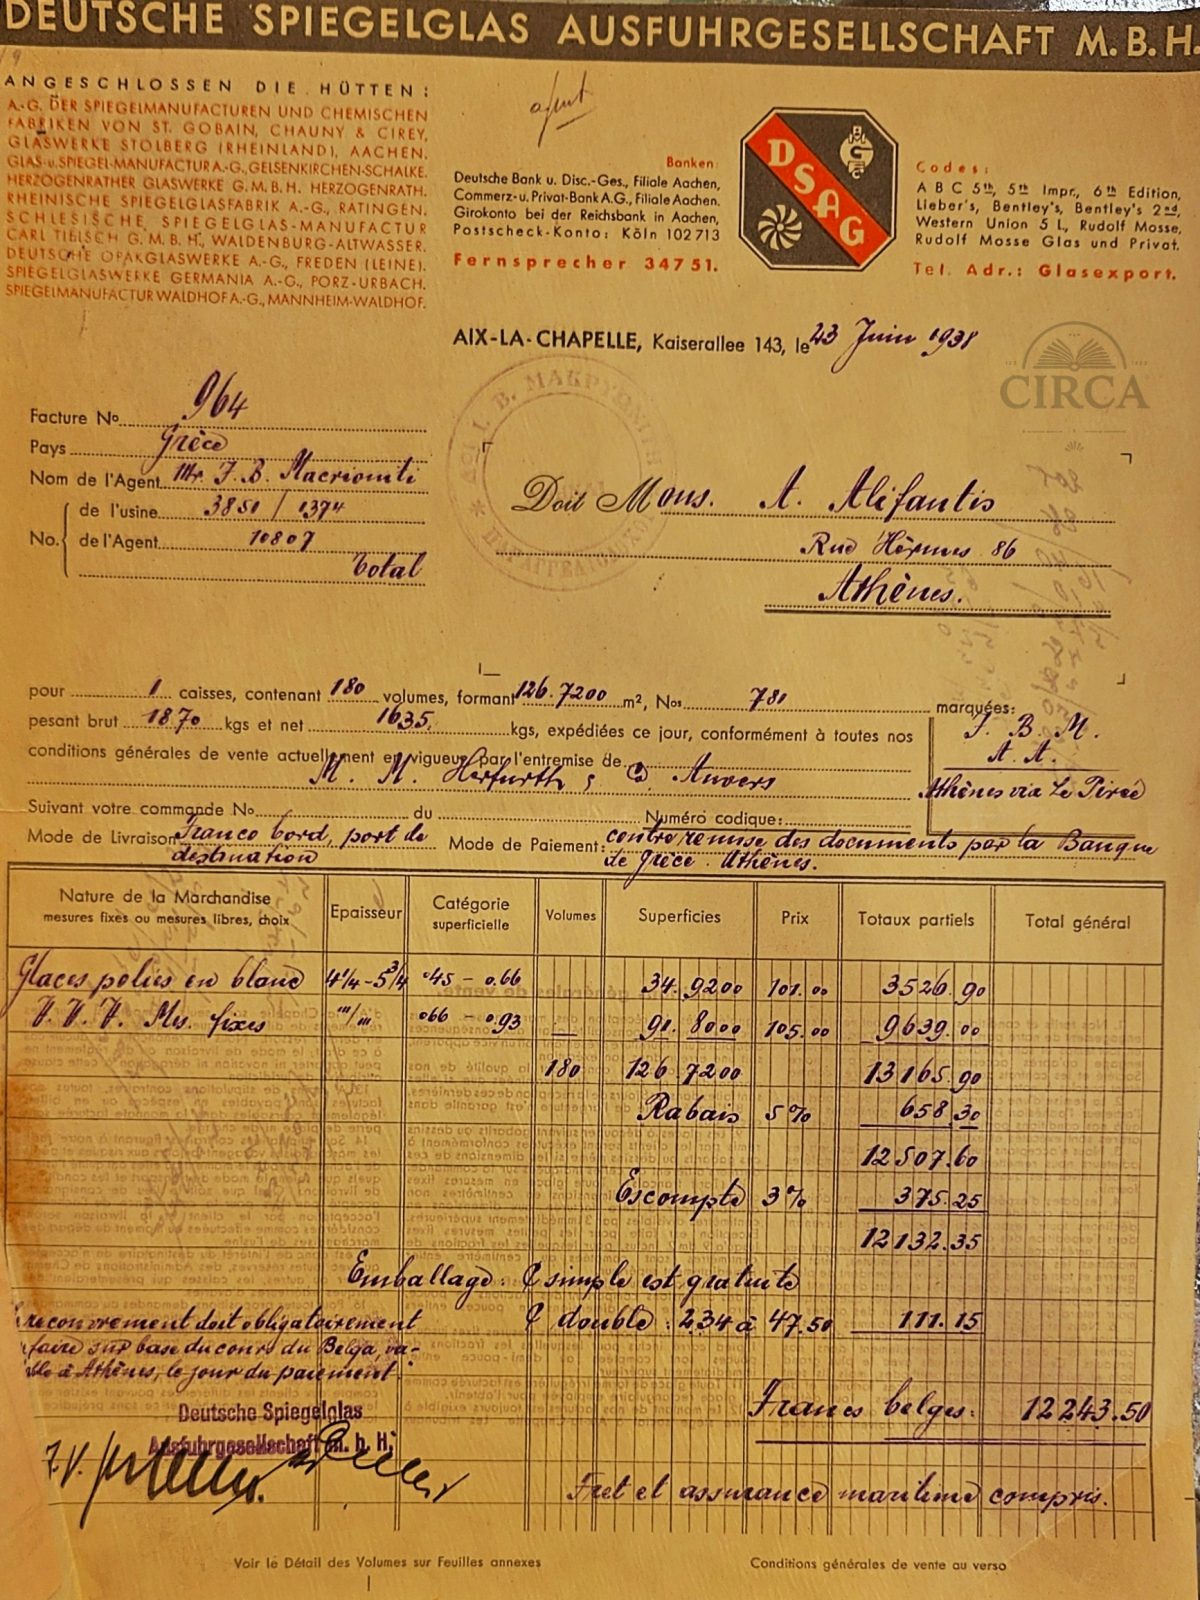 DEUTSCHE SPIEGELGLAS AUSFUHRGESELLSCHAFT M.B.H.
ANGESCHLOSSEN DIE HÜTTEN:
A.-G. DER SPIEGELMANUFACTUREN UND CHEMISCHEN
FABRIKEN VON ST. GOBAIN, CHAUNY & CIREY,
GLASWERKE STOLBERG (RHEINLAND), AACHEN.
GLAS- u. SPIEGEL-MANUFACTUR A.-G., GELSENKIRCHEN-SCHALKE.
HERZOGENRATHER GLASWERKE G.M.B.H. HERZOGENRATH.
RHEINISCHE SPIEGELGLASFABRIK A.-G., RATINGEN.
SCHLESISCHE SPIEGELGLAS-MANUFACTUR
CARL TIELSCH G.M.B.H., WALDENBURG-ALTWASSER.
DEUTSCHE OPAKGLASWERKE A.-G., FREDEN (LEINE).
SPIEGELGLASWERKE GERMANIA A.-G., PORZ-URBACH.
SPIEGELMANUFACTUR WALDHOF A.-G., MANNHEIM-WALDHOF.
Banken:
Deutsche Bank u. Disc.-Ges., Filiale Aachen,
Commerz- u. Privat-Bank A.G., Filiale Aachen.
Girokonto bei der Reichsbank in Aachen,
Postscheck-Konto: Köln 102713
Fernsprecher 34751.
DSAG
Codes:
A B C 5th, 5th Impr., 6th Edition,
Lieber's, Bentley's, Bentley's 2nd,
Western Union 5 L, Rudolf Mosse,
Rudolf Mosse Glas und Privat.
Tel. Adr.: Glasexport.
AIX-LA-CHAPELLE, Kaiserallee 143, le 23 Juin 1938
CIRCA
Facture No 964
Pays Grèce
Nom de l'Agent Mr. J. B. Macriomiti
No. de l'usine 3850 / 1374
de l'Agent 10807
total
Doit Mons. A. Alifantis
Rue Hèrmes 86
Athènes.
pour 1 caisses, contenant 180 volumes, formant 126.7200 m², Nos 781
marquées:
pesant brut 1870 kgs et net 1635. kgs, expédiées ce jour, conformément à toutes nos
J. B. M.
conditions générales de vente actuellement en vigueur par l'entremise de
A. A.
M. M. Herfurth & Co Anvers
Athènes via Le Pirée
Suivant votre commande No. du Numéro codique:
Mode de Livraison Franco bord, port de destination
Mode de Paiement: contre remise des documents par la Banque de Grèce. Athènes.
Nature de la Marchandise
mesures fixes ou mesures libres, choix
Epaisseur
Catégorie
superficielle
Volumes
Superficies
Prix
Totaux partiels
Total général
Glaces polies en blanc 4¼-5¾ 045 - 0.66 34.9200 101.00 3526.90
V. V. V. Mes. fixes "'/"' 066 - 0.93 91.8000 105.00 9639.00
180 126.7200 13165.90
Rabais 5% 658.30
12507.60
Escompte 3% 375.25
12132.35
Emballage: C simple est gratuite
C double: 2.34 à 47.50 111.15
recouvrement doit obligatoirement
faire sur base du cours du Belga, va-
à Athènes, le jour du paiement.
Francs belges: 12243.50
Deutsche Spiegelglas
Ausfuhrgesellschaft m. b. H.
Fret et assurance maritime compris.
Voir le Détail des Volumes sur Feuilles annexes
Conditions générales de vente au verso